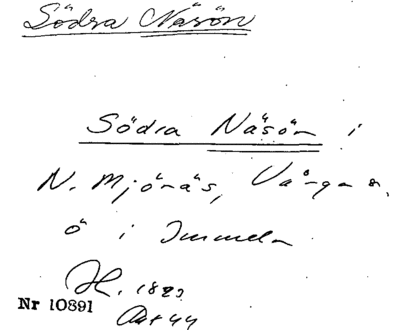 Södra Näsön
Södra Näsön i
N. Mjönäs, Vånga s.
ö i Immeln
H. 1820
Nr 10891